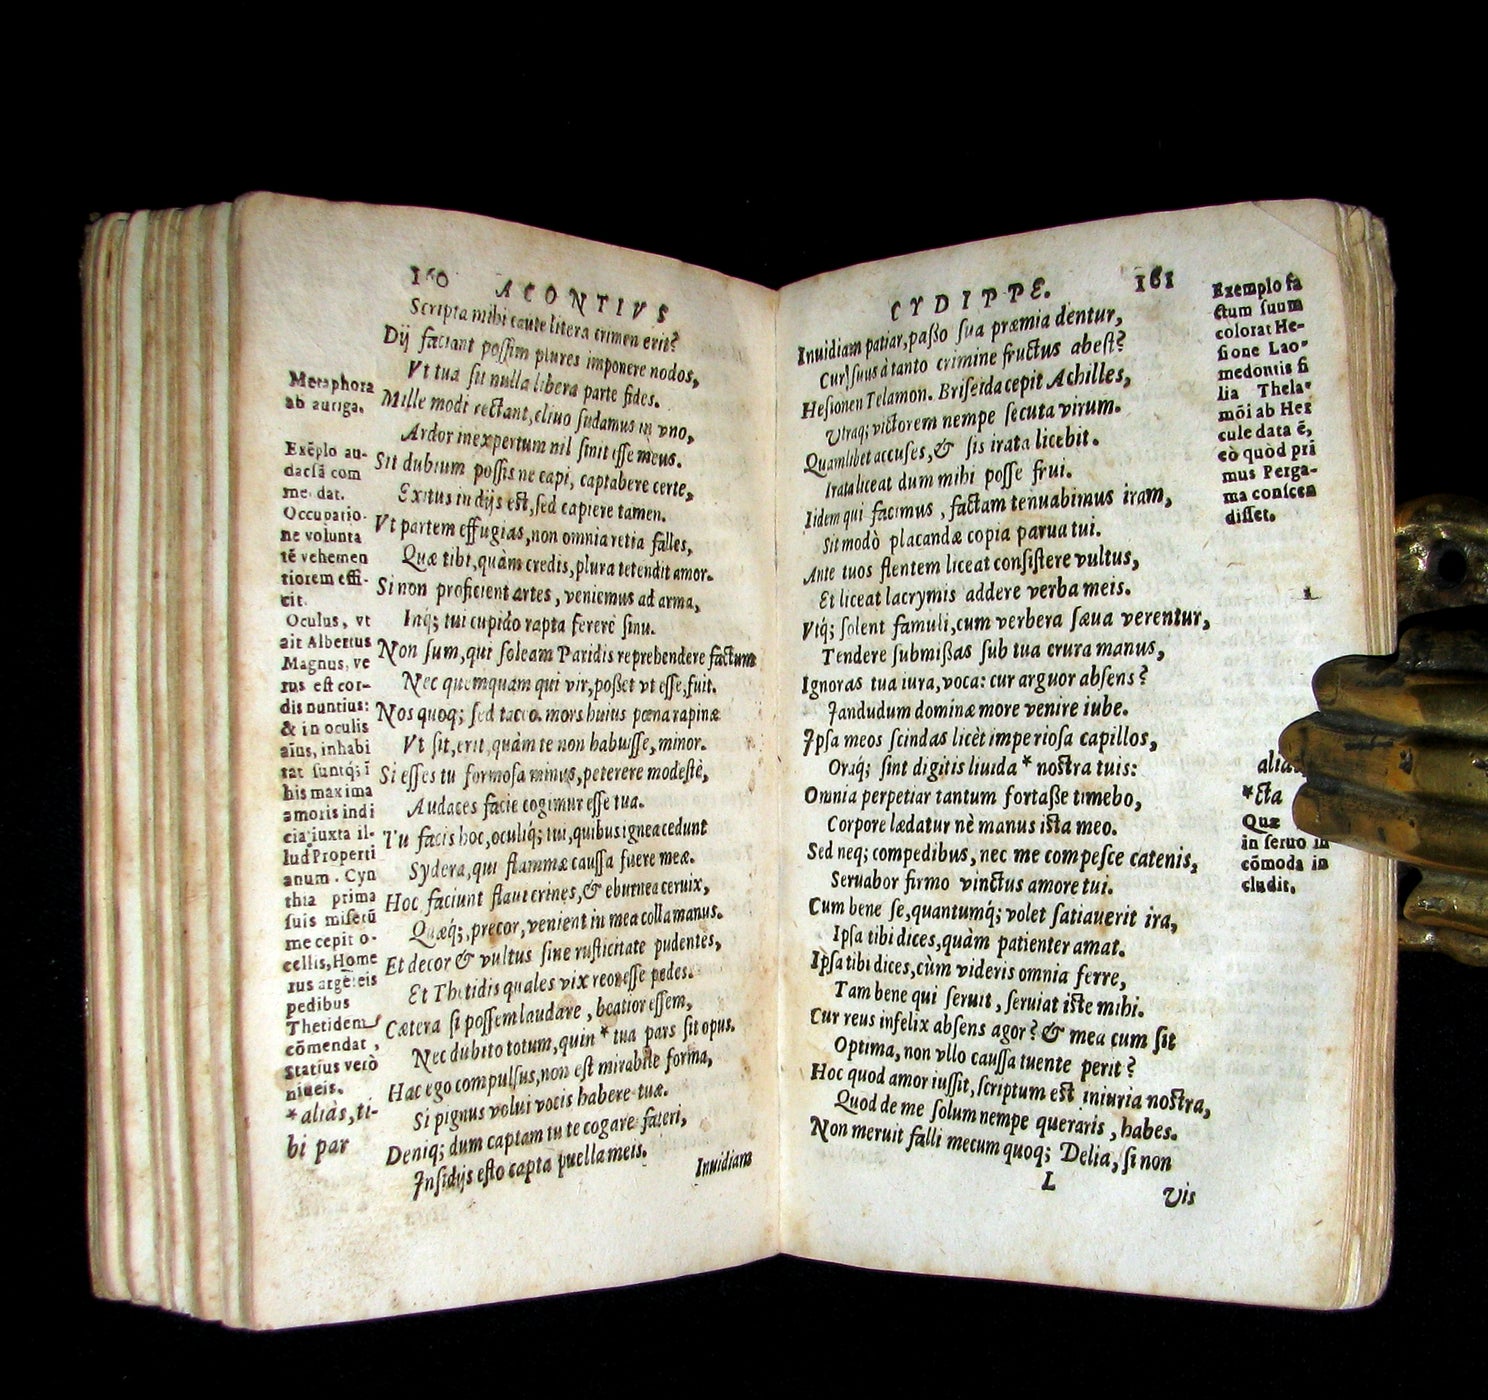 160 ACONTIVS
Scripta mihi caute litera crimen erit?
Dij faciant possim plures imponere nodos,
Vt tua sit nulla libera parte fides.
Mille modi restant, cliuo sudamus in vno,
Ardor inexpertum nil sinit esse meus.
Sit dubium possis ne capi, captabere certe,
Exitus in dijs est, sed capiere tamen.
Vt partem effugias, non omnia retia falles,
Quæ tibi, quàm credis, plura tetendit amor.
Si non proficient artes, veniemus ad arma,
Inq; tui cupido rapta ferere sinu.
Non sum, qui soleam Paridis reprehendere factum
Nec quemquam qui vir, posset vt esse, fuit.
Nos quoq; sed taceo. mors huius pœna rapinæ
Vt sit, erit, quàm te non habuisse, minor.
Si esses tu formosa minus, peterere modestè,
Audaces facie cogimur esse tua.
Tu facis hoc, oculiq; tui, quibus ignea cedunt
Sydera, qui flammæ caussa fuere meæ.
Hoc faciunt flaui crines, & eburnea ceruix,
Quæq;, precor, venient in mea colla manus.
Et decor & vultus sine rusticitate pudentes,
Et Thetidis quales vix reor esse pedes.
Cætera si possem laudare, beatior essem,
Nec dubito totum, quin * tua pars sit opus.
Hac ego compulsus, non est mirabile forma,
Si pignus volui vocis habere tuæ.
Deniq; dum captam tu te cogare fateri,
Insidijs esto capta puella meis.
Inuidiam
Metaphora
ab auriga.
Exēplo au-
daciā com
me dat.
Occupatio-
ne volunta
tē vehemen
tiorem effi-
cit.
Oculus, vt
ait Albertus
Magnus, ve
rus est cor-
dis nuntius:
& in oculis
aīus, inhabi
tat suntq; ī
his maxima
amoris indi
cia iuxta il-
lud Properti
anum. Cyn
thia prima
suis miserū
me cepit o-
cellis, Home
rus argēteis
pedibus
Thetidem
cōmendat,
Statius verò
niueis.
*alias, ti-
bi par
CYDIPPE. 161
Inuidiam patiar, passo sua præmia dentur,
Cur suus à tanto crimine fructus abest?
Hesionen Telamon. Briseida cepit Achilles,
Vtraq; victorem nempe secuta virum.
Quamlibet accuses, & sis irata licebit.
Irata liceat dum mihi posse frui.
Iidem qui facimus, factam tenuabimus iram,
Sit modò placandæ copia parua tui.
Ante tuos flentem liceat consistere vultus,
Et liceat lacrymis addere verba meis.
Vtq́; solent famuli, cum verbera sæua verentur,
Tendere submissas sub tua crura manus,
Ignoras tua iura, voca: cur arguor absens?
Jandudum dominæ more venire iube.
Jpsa meos scindas licèt imperiosa capillos,
Oraq́; sint digitis liuida * nostra tuis:
Omnia perpetiar tantum fortasse timebo,
Corpore lædatur nè manus ista meo.
Sed neq; compedibus, nec me compesce catenis,
Seruabor firmo vinctus amore tui.
Cum bene se, quantumq́; volet satiauerit ira,
Ipsa tibi dices, quàm patienter amat.
Ipsa tibi dices, cùm videris omnia ferre,
Tam bene qui seruit, seruiat iste mihi.
Cur reus infelix absens agor? & mea cum sit
Optima, non vllo caussa tuente perit?
Hoc quod amor iussit, scriptum est iniuria nostra,
Quod de me solum nempe queraris, habes.
Non meruit falli mecum quoq; Delia, si non
L
Vis
Exemplo fa
ctum suum
colorat He-
sione Lao-
medontis fi
lia Thela-
mōi ab Her
cule data ē,
eò quòd pri
mus Perga-
ma conscen
disset.
alias
*cta
Quæ
in seruo in
cōmoda in
cludit.